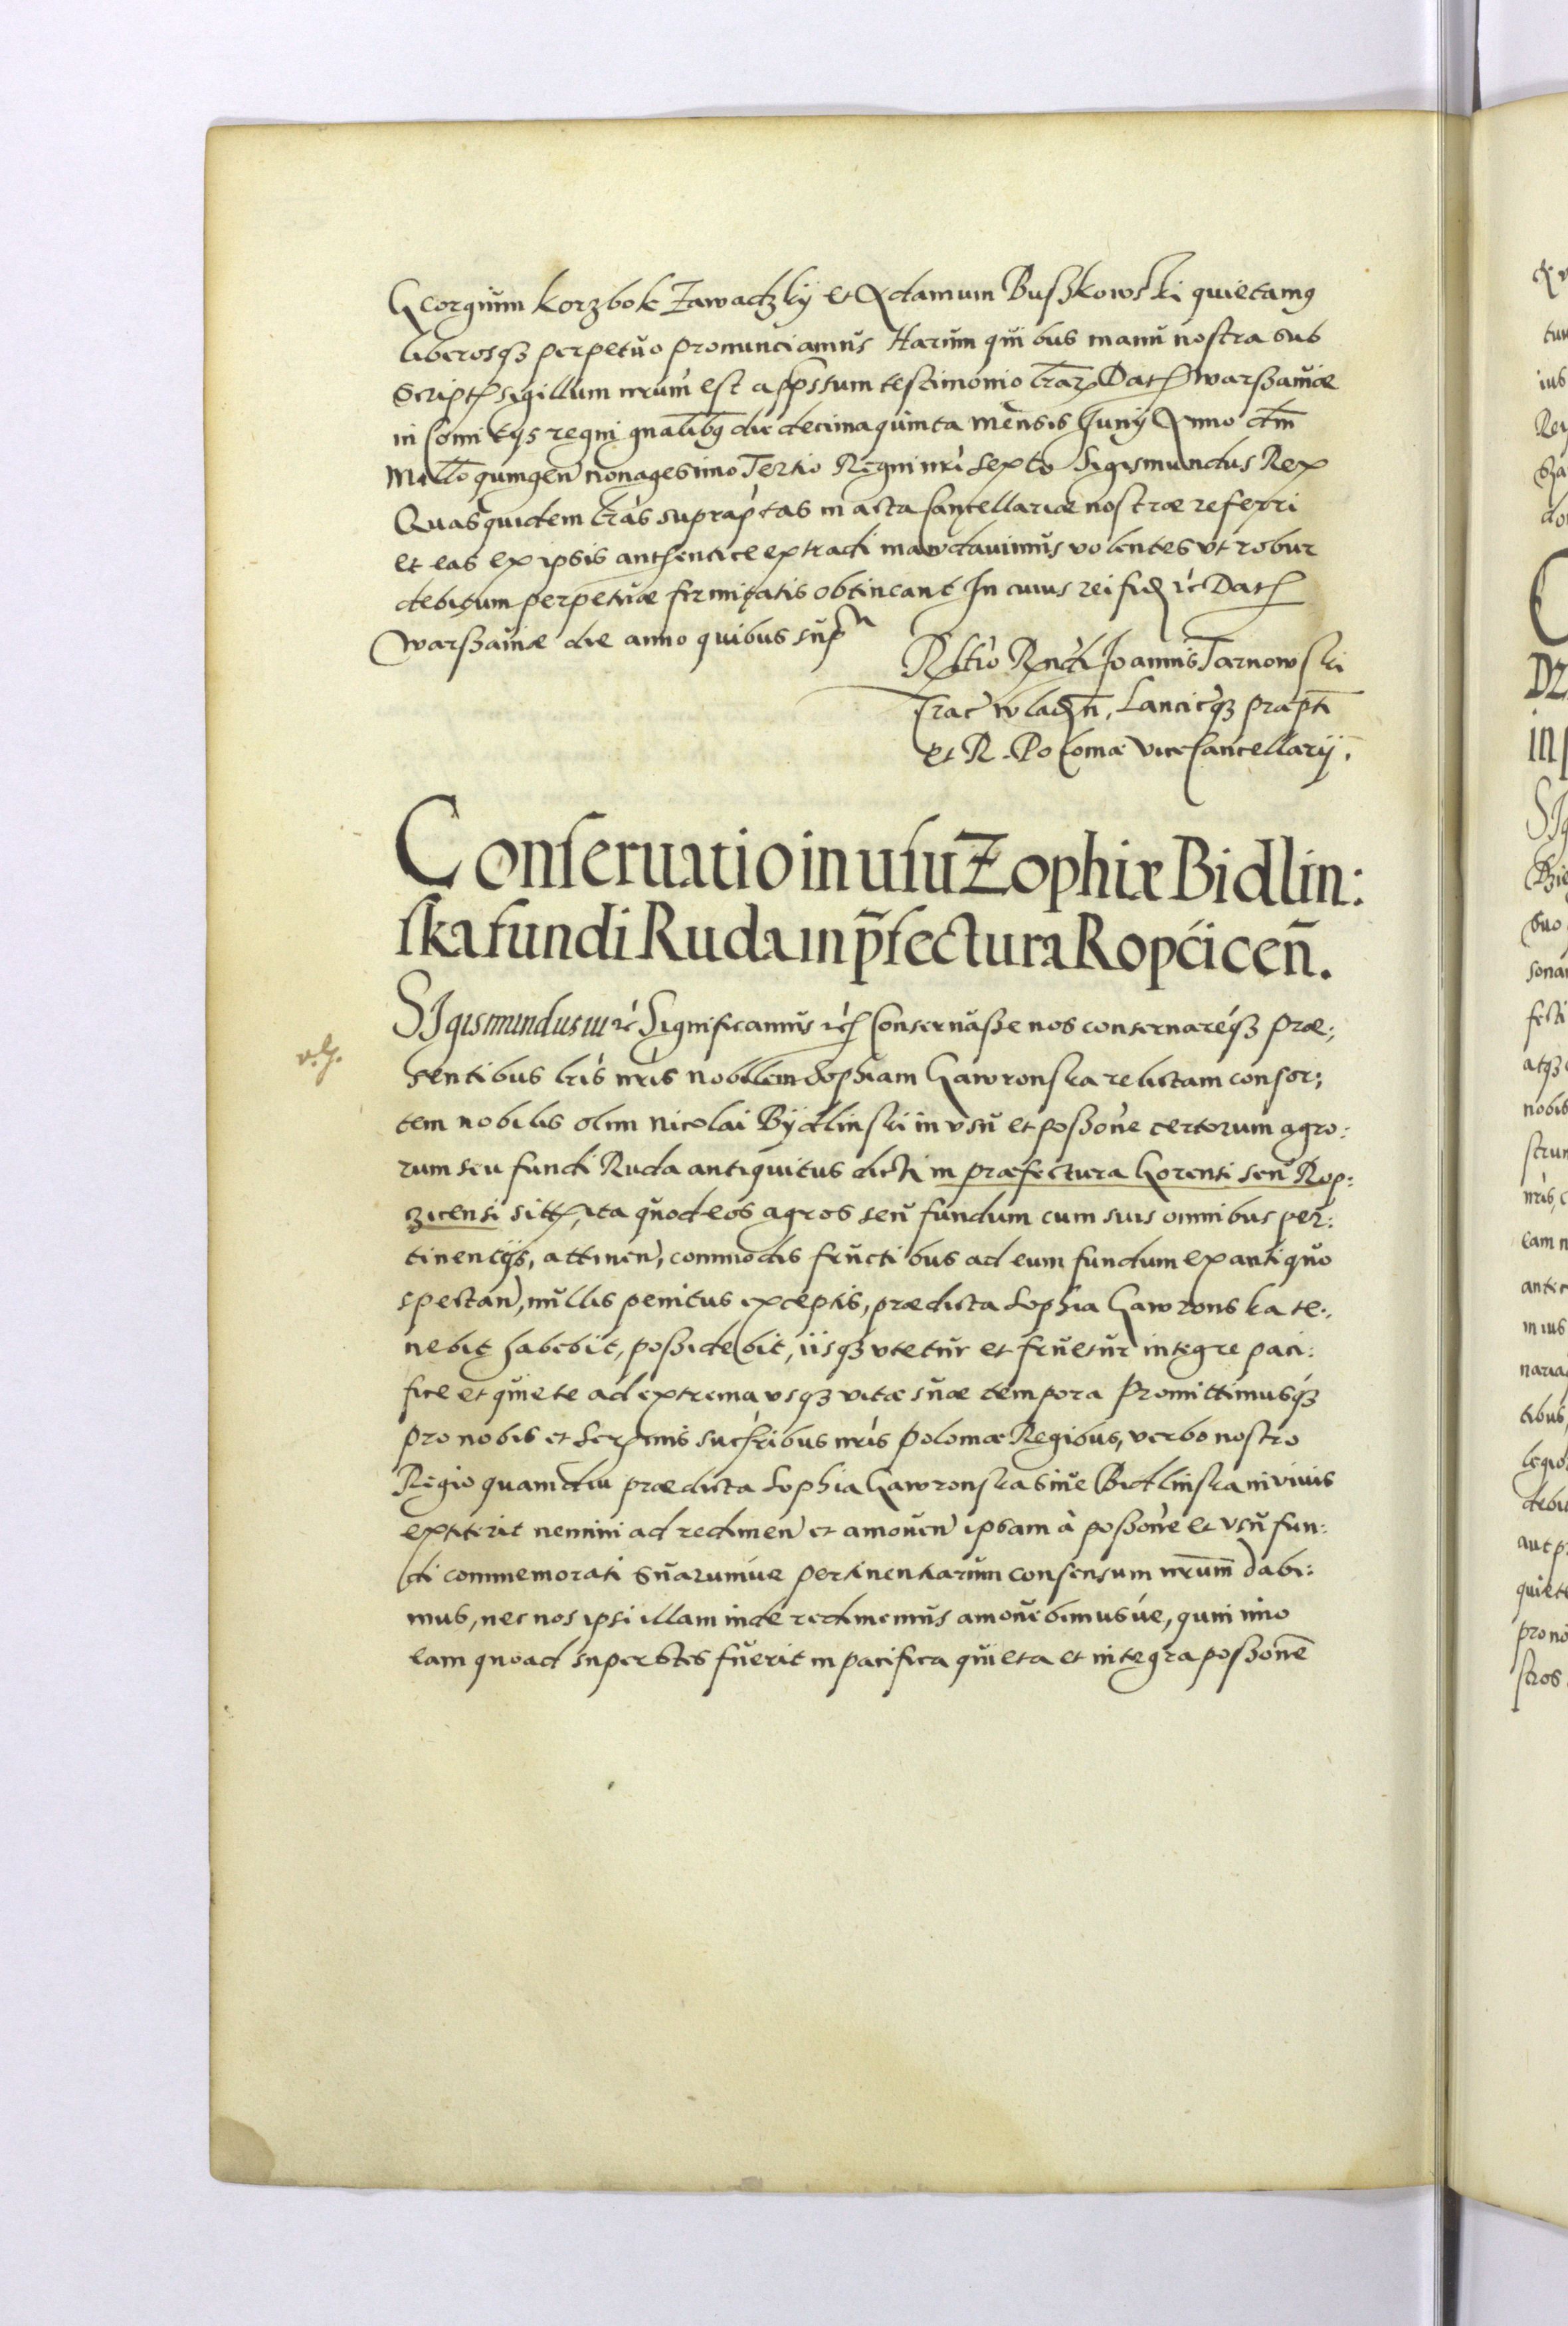 Georgium korzbok Zawadzkÿ et Adamum Bußkowski quietamq
liberosqꝫ perpetuo pronunciamus Harum quibus manu nostra sub
Script sigillum nrum est appssum testimonio lrar Dat Warßaviæ
in Comitÿs regni gnalibq die decima quinta mensis Junÿ Anno dni
Millo quingen nonagesimo Tertio Regni nri sexto Sigismundus Rex
Quas quidem lras supraptas in acta Cancellariæ nostræ referri
et eas ex ipsis authentice extradi mandavimus volentes ut robur
debitum perpetuæ firmitatis obtineant In cuius rei fid rc Dat
Warßaviæ die anno quibus sup
Rltio Rndi Joannis Tarnowski
Crac wladn, Lancicqꝫ præpti
et R. Poloniæ ViceCancellarÿ.
Conseruatio in usu Zophiæ Bidlin:
ska fundi Ruda in p̄fectura Ropcicen̄.
SIgismundus III rc Significamus rc Conservaße nos conservareqꝫ præ:
sentibus lris nris nobilem Sophiam Gawronska relictam consor:
tem nobilis olim Nicolai Bÿdlinski in usu et poßone certorum agro:
rum seu fundi Ruda antiquitus dicti in præfectura Gorensi seu Rop:
zicensi sitt, ita quod eos agros seu fundum cum suis omnibus per:
tinentÿs, attinen, commodis fructibus ad eum fundum ex antiquo
spectan, nullis penitus exceptis, prædicta Sophia Gawronska te:
nebit habebit, poßidebit, iisqꝫ utetur et fruetur integre paci:
fice et quiete ad extrema usqꝫ vitæ suæ tempora Promittimusqꝫ
pro nobis et Serenmis sucribus nris Poloniæ Regibus, verbo nostro
Regio quamdiu prædicta Sophia Gawronska sive Bidlinska in vivis
extiterit nemini ad redimen et amoven ipsam à poßone et usu fun:
di commemorati suarumve pertinentiarum consensum nrum dabi:
mus, nec nos ipsi illam inde redimemus amovebimusve, quin imo
eam quoad superstes fuerit in pacifica quieta et integra poßone